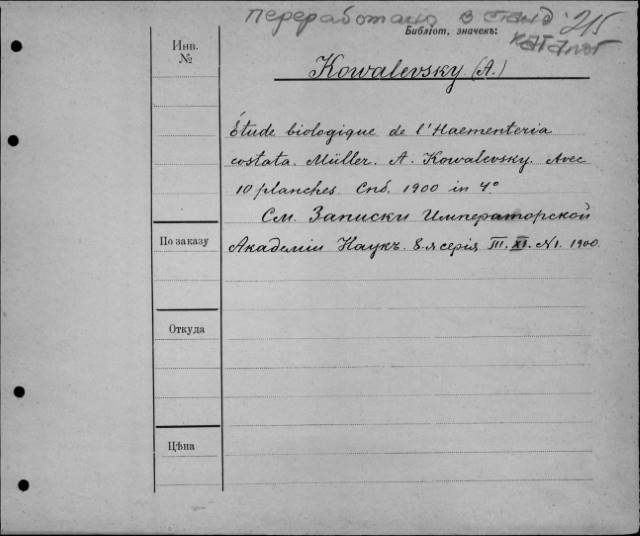 переработано в станд 215
каталог
Библіот, значекъ:
Инв.
№
Kowalevsky (A.)
Étude biologique de l'Haementeria
costata. Müller. A. Kowalevsky. Avec
10 planches. Спб. 1900 in 4°
См. Записки Императорской
Академіи Наукъ. 8-я серія III. XI. N1. 1900.
По заказу
Откуда
Цѣна